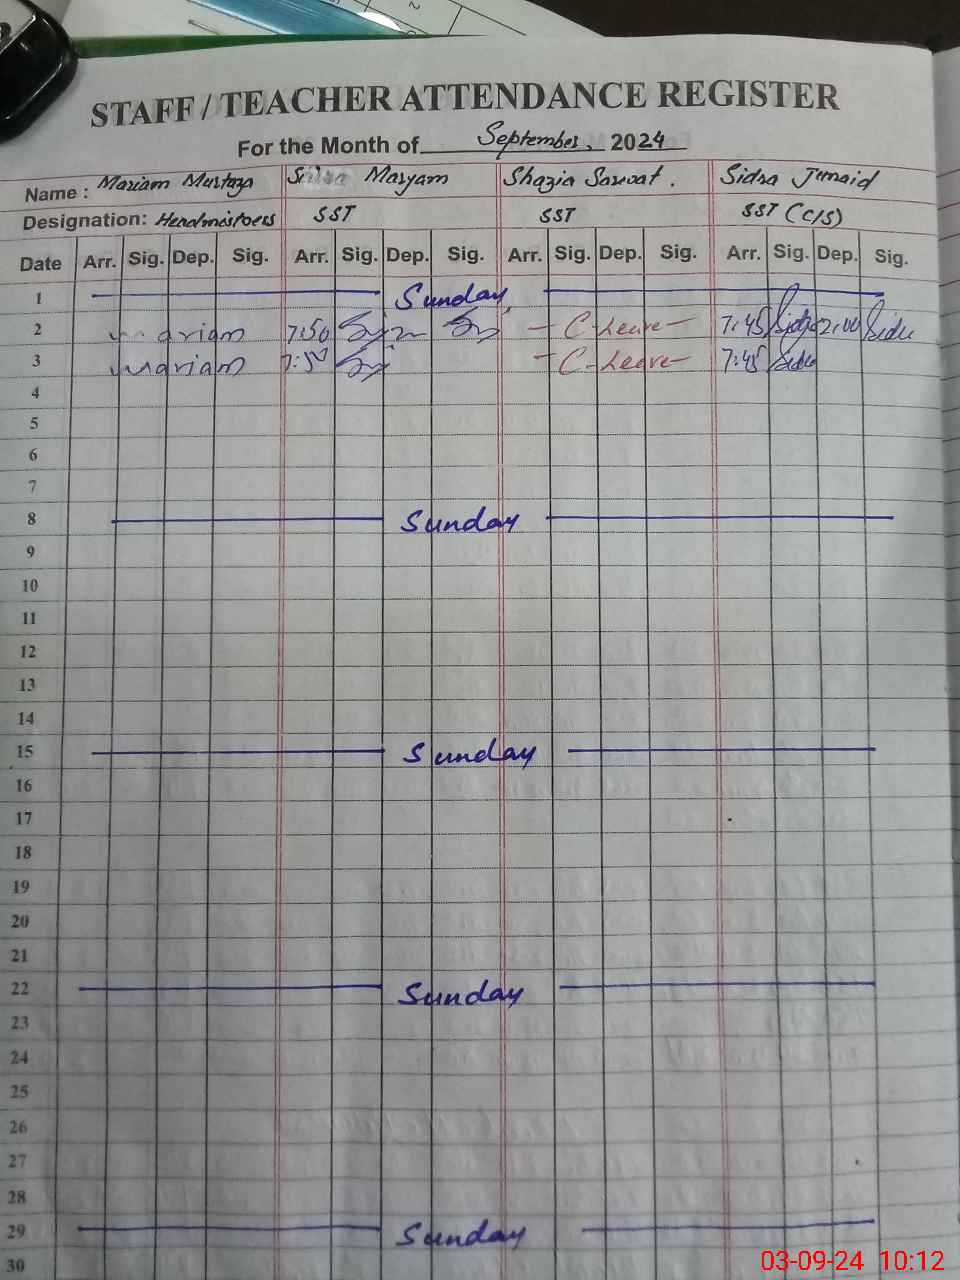 STAFF / TEACHER ATTENDANCE REGISTER
For the Month of September, 2024
Name : Mariam Murtaza Maryam Shazia Sarwat. Sidra Junaid
Designation: Headmistress SST SST SST (C/S)
Date Arr. Sig. Dep. Sig. Arr. Sig. Dep. Sig. Arr. Sig. Dep. Sig. Arr. Sig. Dep. Sig.
1 Sunday
2 Mariam 7:50 - C-Leave - 7:45 Sidra 2:00 Sidra
3 Mariam 7:50 - C-Leave - 7:45 Sidra
4
5
6
7
8 Sunday
9
10
11
12
13
14
15 Sunday
16
17
18
19
20
21
22 Sunday
23
24
25
26
27
28
29 Sunday
30
03-09-24 10:12